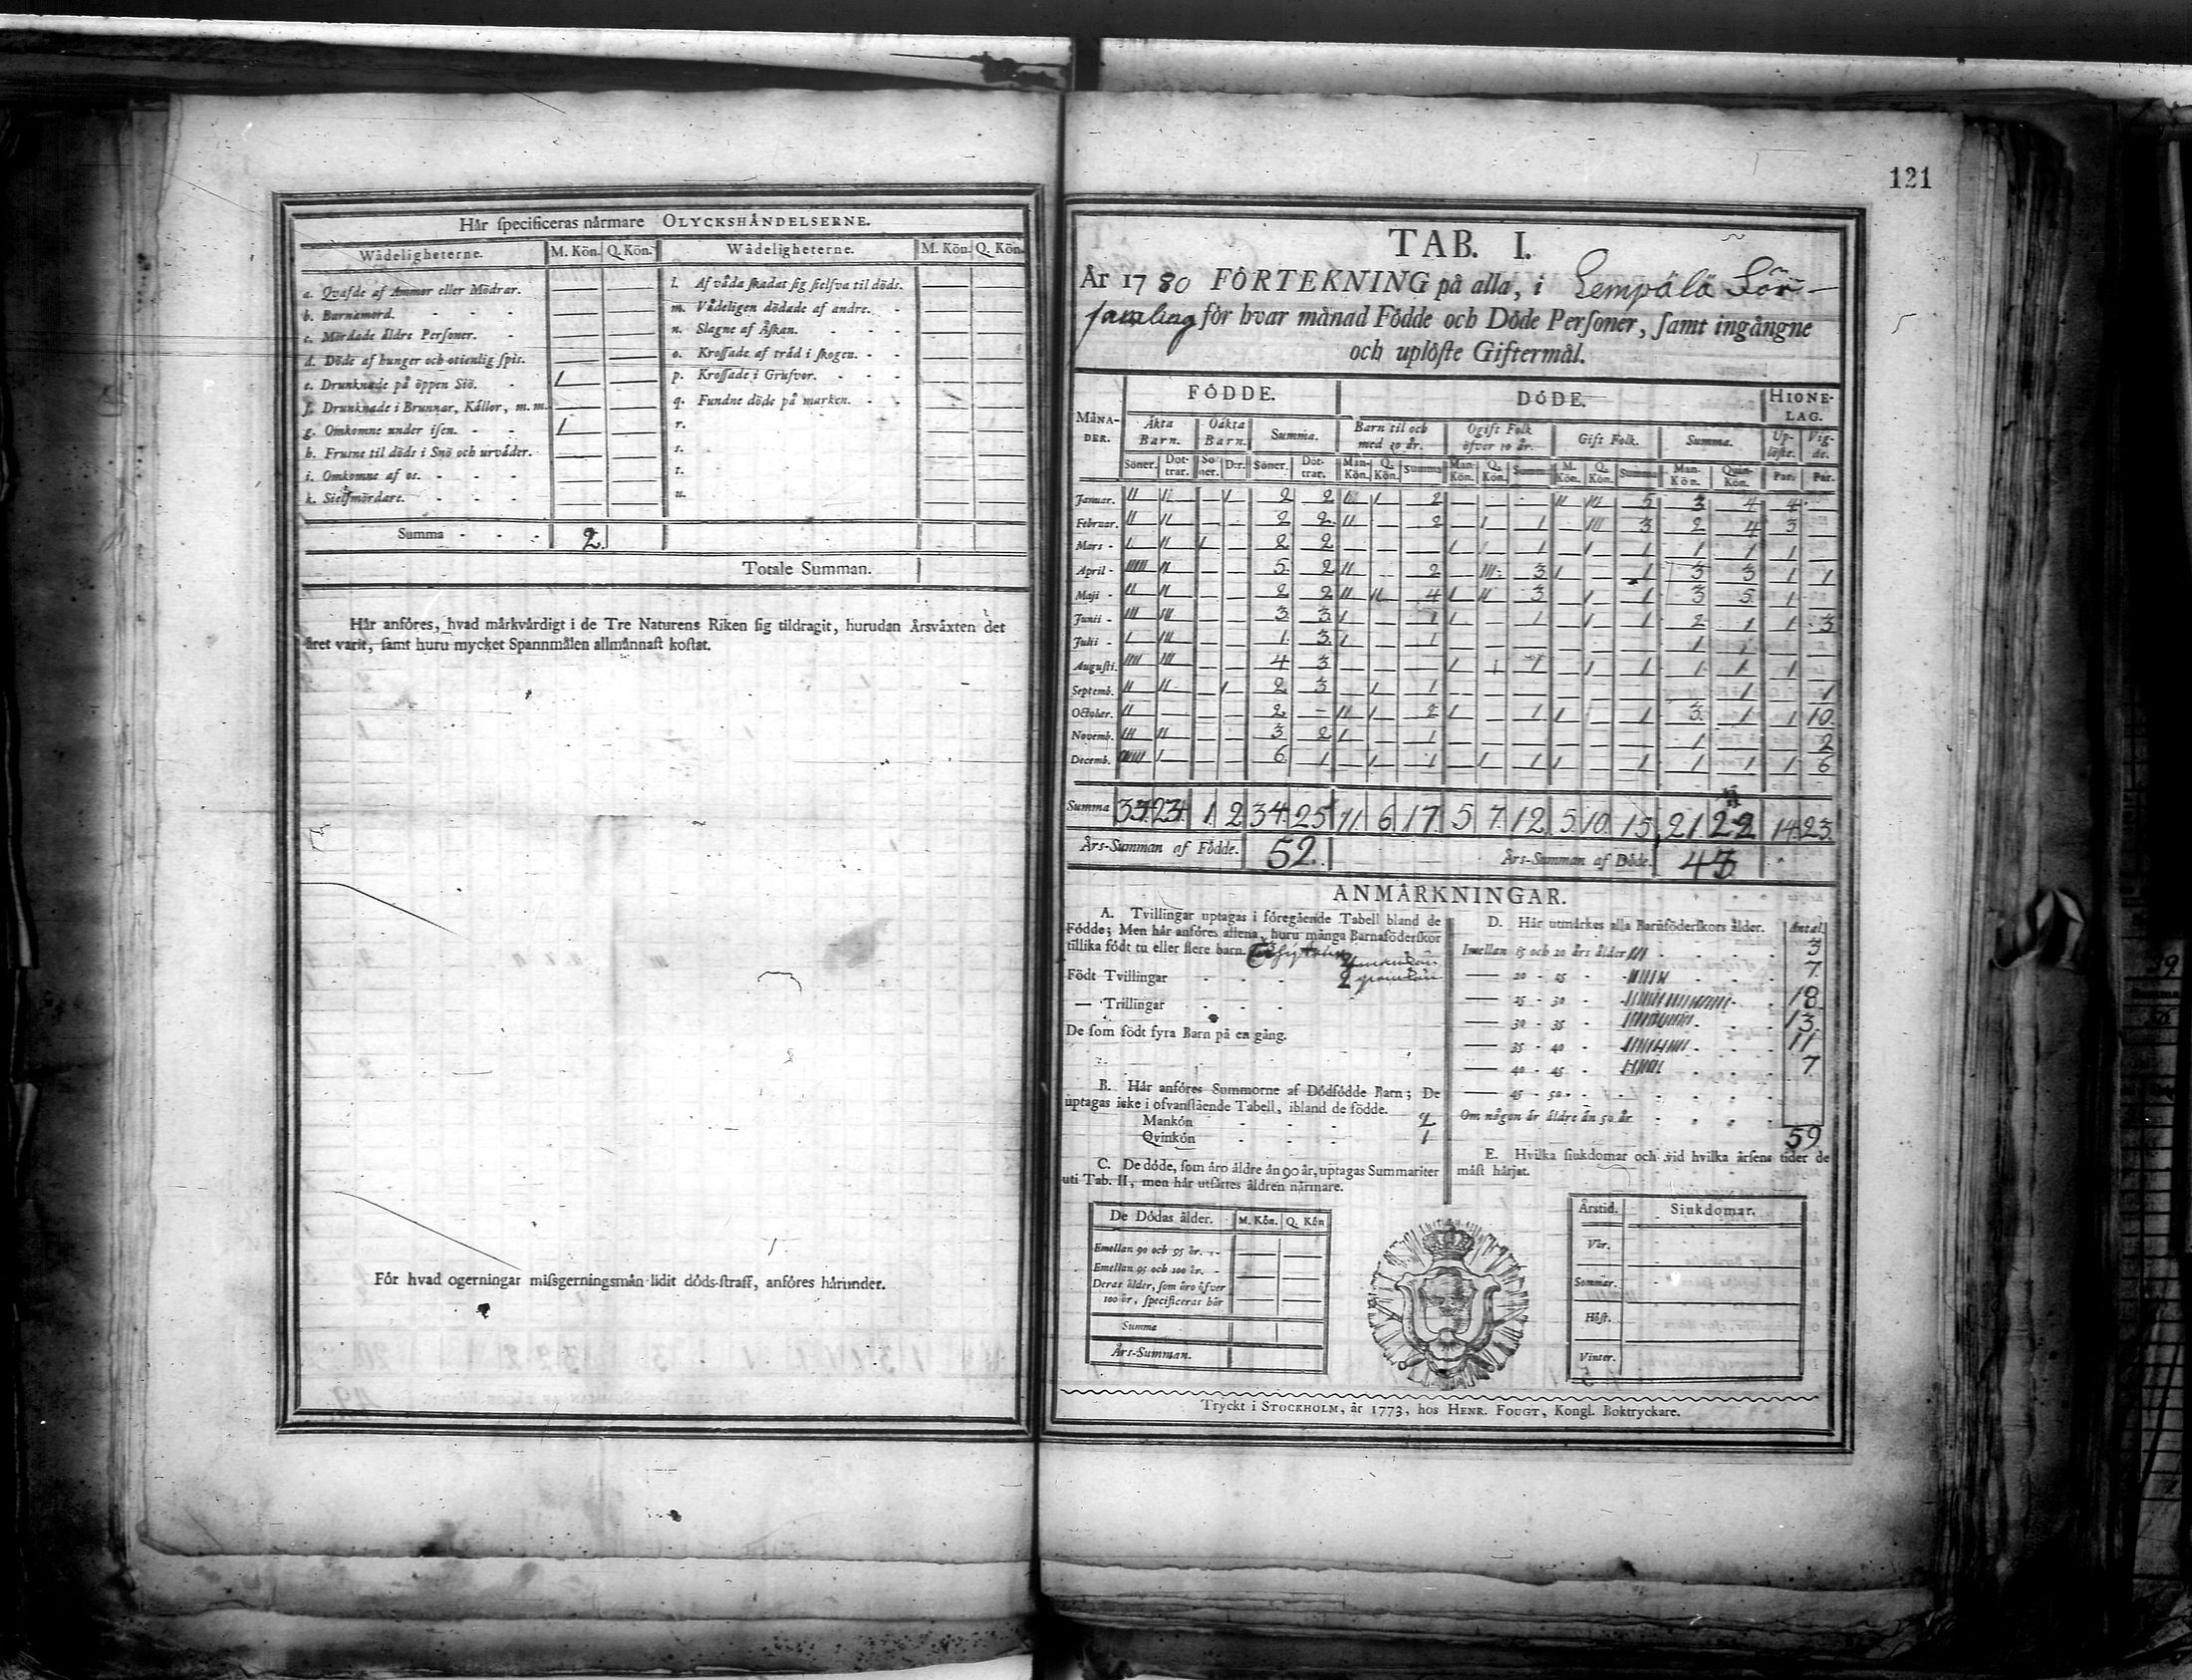 Hår specificeras nårmare OLYCKSHÅNDELSERNE.
Wådeligheterne. M. Kön. Q. Kön. Wådeligheterne. M. Kön. Q. Kön.
a. Qvafde af Ammor eller Mödrar. l. Af våda skadat sig sielfva til döds.
b. Barnamord. m. Vådeligen dödade af andre.
c. Mördade äldre Personer. n. Slagne af Åskan.
d. Döde af hunger och otienlig spis. o. Krossade af träd i skogen.
e. Drunknade på öppen Siö. 1 p. Krossade i Grufvor.
f. Drunknade i Brunnar, Källor, m.m. q. Fundne döde på marken.
g. Omkomne under isen. 1 r.
h. Frusne til döds i Snö och urväder. s.
i. Omkomne af os. t.
k. Sielfmördare. u.
Summa 2.
Totale Summan.
Hår anföres, hvad mårkvårdigt i de Tre Naturens Riken sig tildragit, hurudan Årsvåxten det
året varit, samt huru mycket Spannmålen allmånnast kostat.
För hvad ogerningar missgerningsmån lidit döds-straff, anföres hårunder.
121
TAB. I.
År 1780 FÖRTEKNING på alla, i Lempälä För-
samling för hvar månad Födde och Döde Personer, samt ingångne
och uplöste Giftermål.
FÖDDE. DÖDE. HIONE-LAG.
MÅNA-DER. Äkta Barn. Oäkta Barn. Summa. Barn til och med 10 år. Ogift Folk öfver 10 år. Gift Folk. Summa. Up-löste. Vig-de.
Söner. Dot-trar. Sö-ner. D:r. Söner. Döt-trar. Man-Kön. Q. Kön. Summa Man-Kön. Q. Kön. Summa M. Kön. Q. Kön. Summa Man-Kön. Quin-Kön. Par. Par.
Januar. 2 2 2 5 3 4 4
Februar. 2 2 2 1 3 2 4 3
Mars 2 2 1 1 1 1 1
April 5 2 2 3 1 3 3 1 1
Maji 2 2 4 3 1 3 5 1
Junii 3 3 1 1 1 2 1 1 3
Julii 1 3 1 1
Augusti. 4 3 1 1 1 1 1
Septemb. 2 3 1 1 1
October. 2 - 2 1 1 3 1 1 10
Novemb. 3 2 1 1 2
Decemb. 6 1 1 1 1 1 1 1 6
Summa 1 2 34 25 11 6 17 5 7 12 5 10 15 21 22 14 23
Års-Summan af Födde. 52. Års-Summan af Döde.
ANMÅRKNINGAR.
A. Tvillingar uptagas i föregående Tabell bland de
Födde; Men hår anföres allena, huru många Barnaföderskor
tillika födt tu eller flere barn.
Födt Tvillingar 2
— Trillingar
De som födt fyra Barn på en gång.
B. Hår anföres Summorne af Dödfödde Barn; De
uptagas icke i ofvanstående Tabell, ibland de födde.
Mankön 2
Qvinkön 1
C. De döde, som åro åldre ån 90 år, uptagas Summariter
uti Tab. II, men hår utsåttes åldren nårmare.
De Dödas ålder. M. Kön. Q. Kön
Emellan 90 och 95 år.
Emellan 95 och 100 år.
Deras ålder, som åro öfver
100 år, specificeras hår
Summa
Års-Summan.
D. Hår utmårkes alla Barnföderskors ålder. Antal
Imellan 15 och 20 års ålder 3
— 20 - 25 7
— 25 - 30 18
— 30 - 35 13
— 35 - 40 11
— 40 - 45 7
— 45 - 50
Om någon år åldre ån 50 år
59
E. Hvilka siukdomar och vid hvilka årsens tider de
måst hårjat.
Årstid. Siukdomar.
Vår.
Sommar.
Höst.
Vinter.
Tryckt i STOCKHOLM, år 1773, hos HENR. FOUGT, Kongl. Boktryckare.